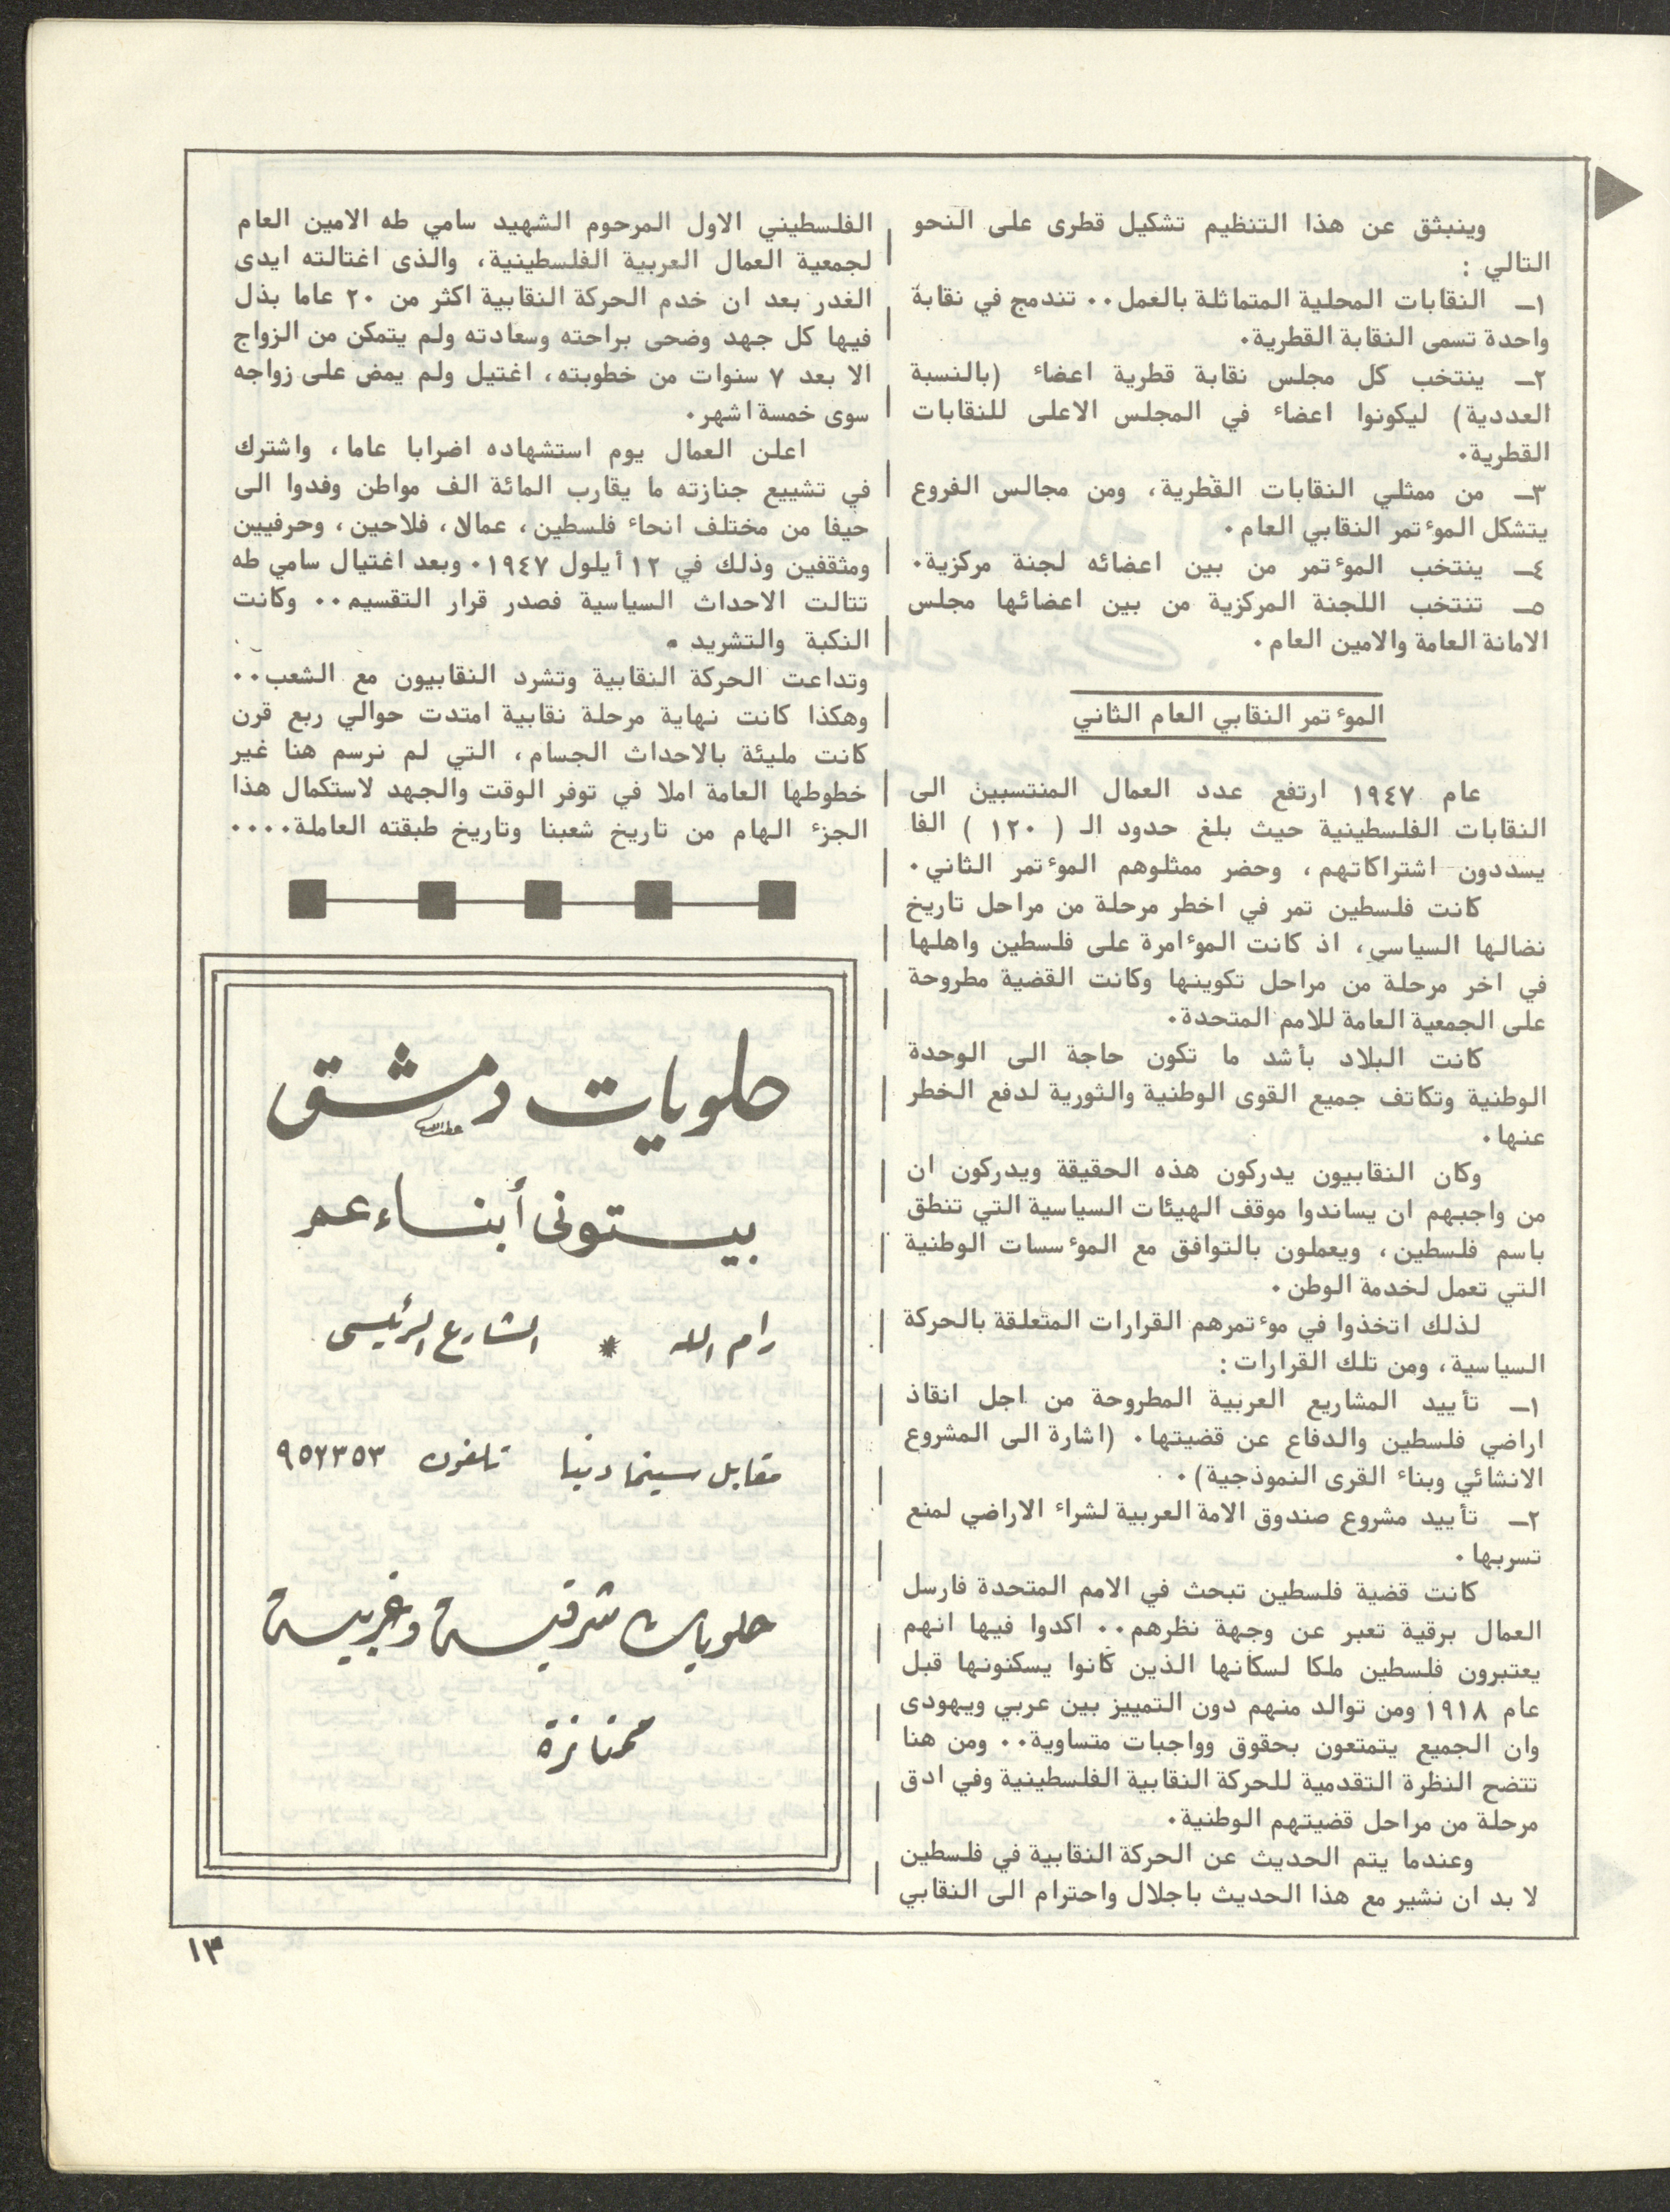 وينبثق عن هذا التنظيم تشكيل قطرى على النحو
التالي :
١ـ النقابات المحلية المتماثلة بالعمل٠٠ تندمج في نقابة
واحدة تسمى النقابة القطرية٠
٢ـ ينتخب كل مجلس نقابة قطرية اعضاء (بالنسبة
العددية) ليكونوا اعضاء في المجلس الاعلى للنقابات
القطرية٠
٣ـ من ممثلي النقابات القطرية، ومن مجالس الفروع
يتشكل المؤتمر النقابي العام٠
٤ـ ينتخب المؤتمر من بين اعضائه لجنة مركزية٠
٥ـ تنتخب اللجنة المركزية من بين اعضائها مجلس
الامانة العامة والامين العام٠
المؤتمر النقابي العام الثاني
عام ١٩٤٧ ارتفع عدد العمال المنتسبين الى
النقابات الفلسطينية حيث بلغ حدود الـ ( ١٢٠ ) الفا
يسددون اشتراكاتهم، وحضر ممثلوهم المؤتمر الثاني٠
كانت فلسطين تمر في اخطر مرحلة من مراحل تاريخ
نضالها السياسي، اذ كانت المؤامرة على فلسطين واهلها
في اخر مرحلة من مراحل تكوينها وكانت القضية مطروحة
على الجمعية العامة للامم المتحدة٠
كانت البلاد بأشد ما تكون حاجة الى الوحدة
الوطنية وتكاتف جميع القوى الوطنية والثورية لدفع الخطر
عنها٠
وكان النقابيون يدركون هذه الحقيقة ويدركون ان
من واجبهم ان يساندوا موقف الهيئات السياسية التي تنطق
باسم فلسطين، ويعملون بالتوافق مع المؤسسات الوطنية
التي تعمل لخدمة الوطن٠
لذلك اتخذوا في مؤتمرهم القرارات المتعلقة بالحركة
السياسية، ومن تلك القرارات:
١ـ تأييد المشاريع العربية المطروحة من اجل انقاذ
اراضي فلسطين والدفاع عن قضيتها٠ (اشارة الى المشروع
الانشائي وبناء القرى النموذجية)٠
٢ـ تأييد مشروع صندوق الامة العربية لشراء الاراضي لمنع
تسربها٠
كانت قضية فلسطين تبحث في الامم المتحدة فارسل
العمال برقية تعبر عن وجهة نظرهم٠٠ اكدوا فيها انهم
يعتبرون فلسطين ملكا لسكانها الذين كانوا يسكنونها قبل
عام ١٩١٨ ومن توالد منهم دون التمييز بين عربي ويهودى
وان الجميع يتمتعون بحقوق وواجبات متساوية٠٠ ومن هنا
تتضح النظرة التقدمية للحركة النقابية الفلسطينية وفي ادق
مرحلة من مراحل قضيتهم الوطنية٠
وعندما يتم الحديث عن الحركة النقابية في فلسطين
لا بد ان نشير مع هذا الحديث باجلال واحترام الى النقابي
الفلسطيني الاول المرحوم الشهيد سامي طه الامين العام
لجمعية العمال العربية الفلسطينية، والذى اغتالته ايدى
الغدر بعد ان خدم الحركة النقابية اكثر من ٢٠ عاما بذل
فيها كل جهد وضحى براحته وسعادته ولم يتمكن من الزواج
الا بعد ٧ سنوات من خطوبته، اغتيل ولم يمض على زواجه
سوى خمسة اشهر٠
اعلن العمال يوم استشهاده اضرابا عاما، واشترك
في تشييع جنازته ما يقارب المائة الف مواطن وفدوا الى
حيفا من مختلف انحاء فلسطين، عمالا، فلاحين، وحرفيين
ومثقفين وذلك في ١٢ أيلول ١٩٤٧٠ وبعد اغتيال سامي طه
تتالت الاحداث السياسية فصدر قرار التقسيم٠٠ وكانت
النكبة والتشريد ٠
وتداعت الحركة النقابية وتشرد النقابيون مع الشعب٠٠
وهكذا كانت نهاية مرحلة نقابية امتدت حوالي ربع قرن
كانت مليئة بالاحداث الجسام، التي لم نرسم هنا غير
خطوطها العامة املا في توفر الوقت والجهد لاستكمال هذا
الجزء الهام من تاريخ شعبنا وتاريخ طبقته العاملة٠٠٠٠
حلويات دمشق
بيستونى أبناء عم
رام الله * الشارع الرئيسى
مقابل سينما دنيا تلفون ٩٥٢٣٥٣
حلويات شرقية وغربية
ممتازة
١٣